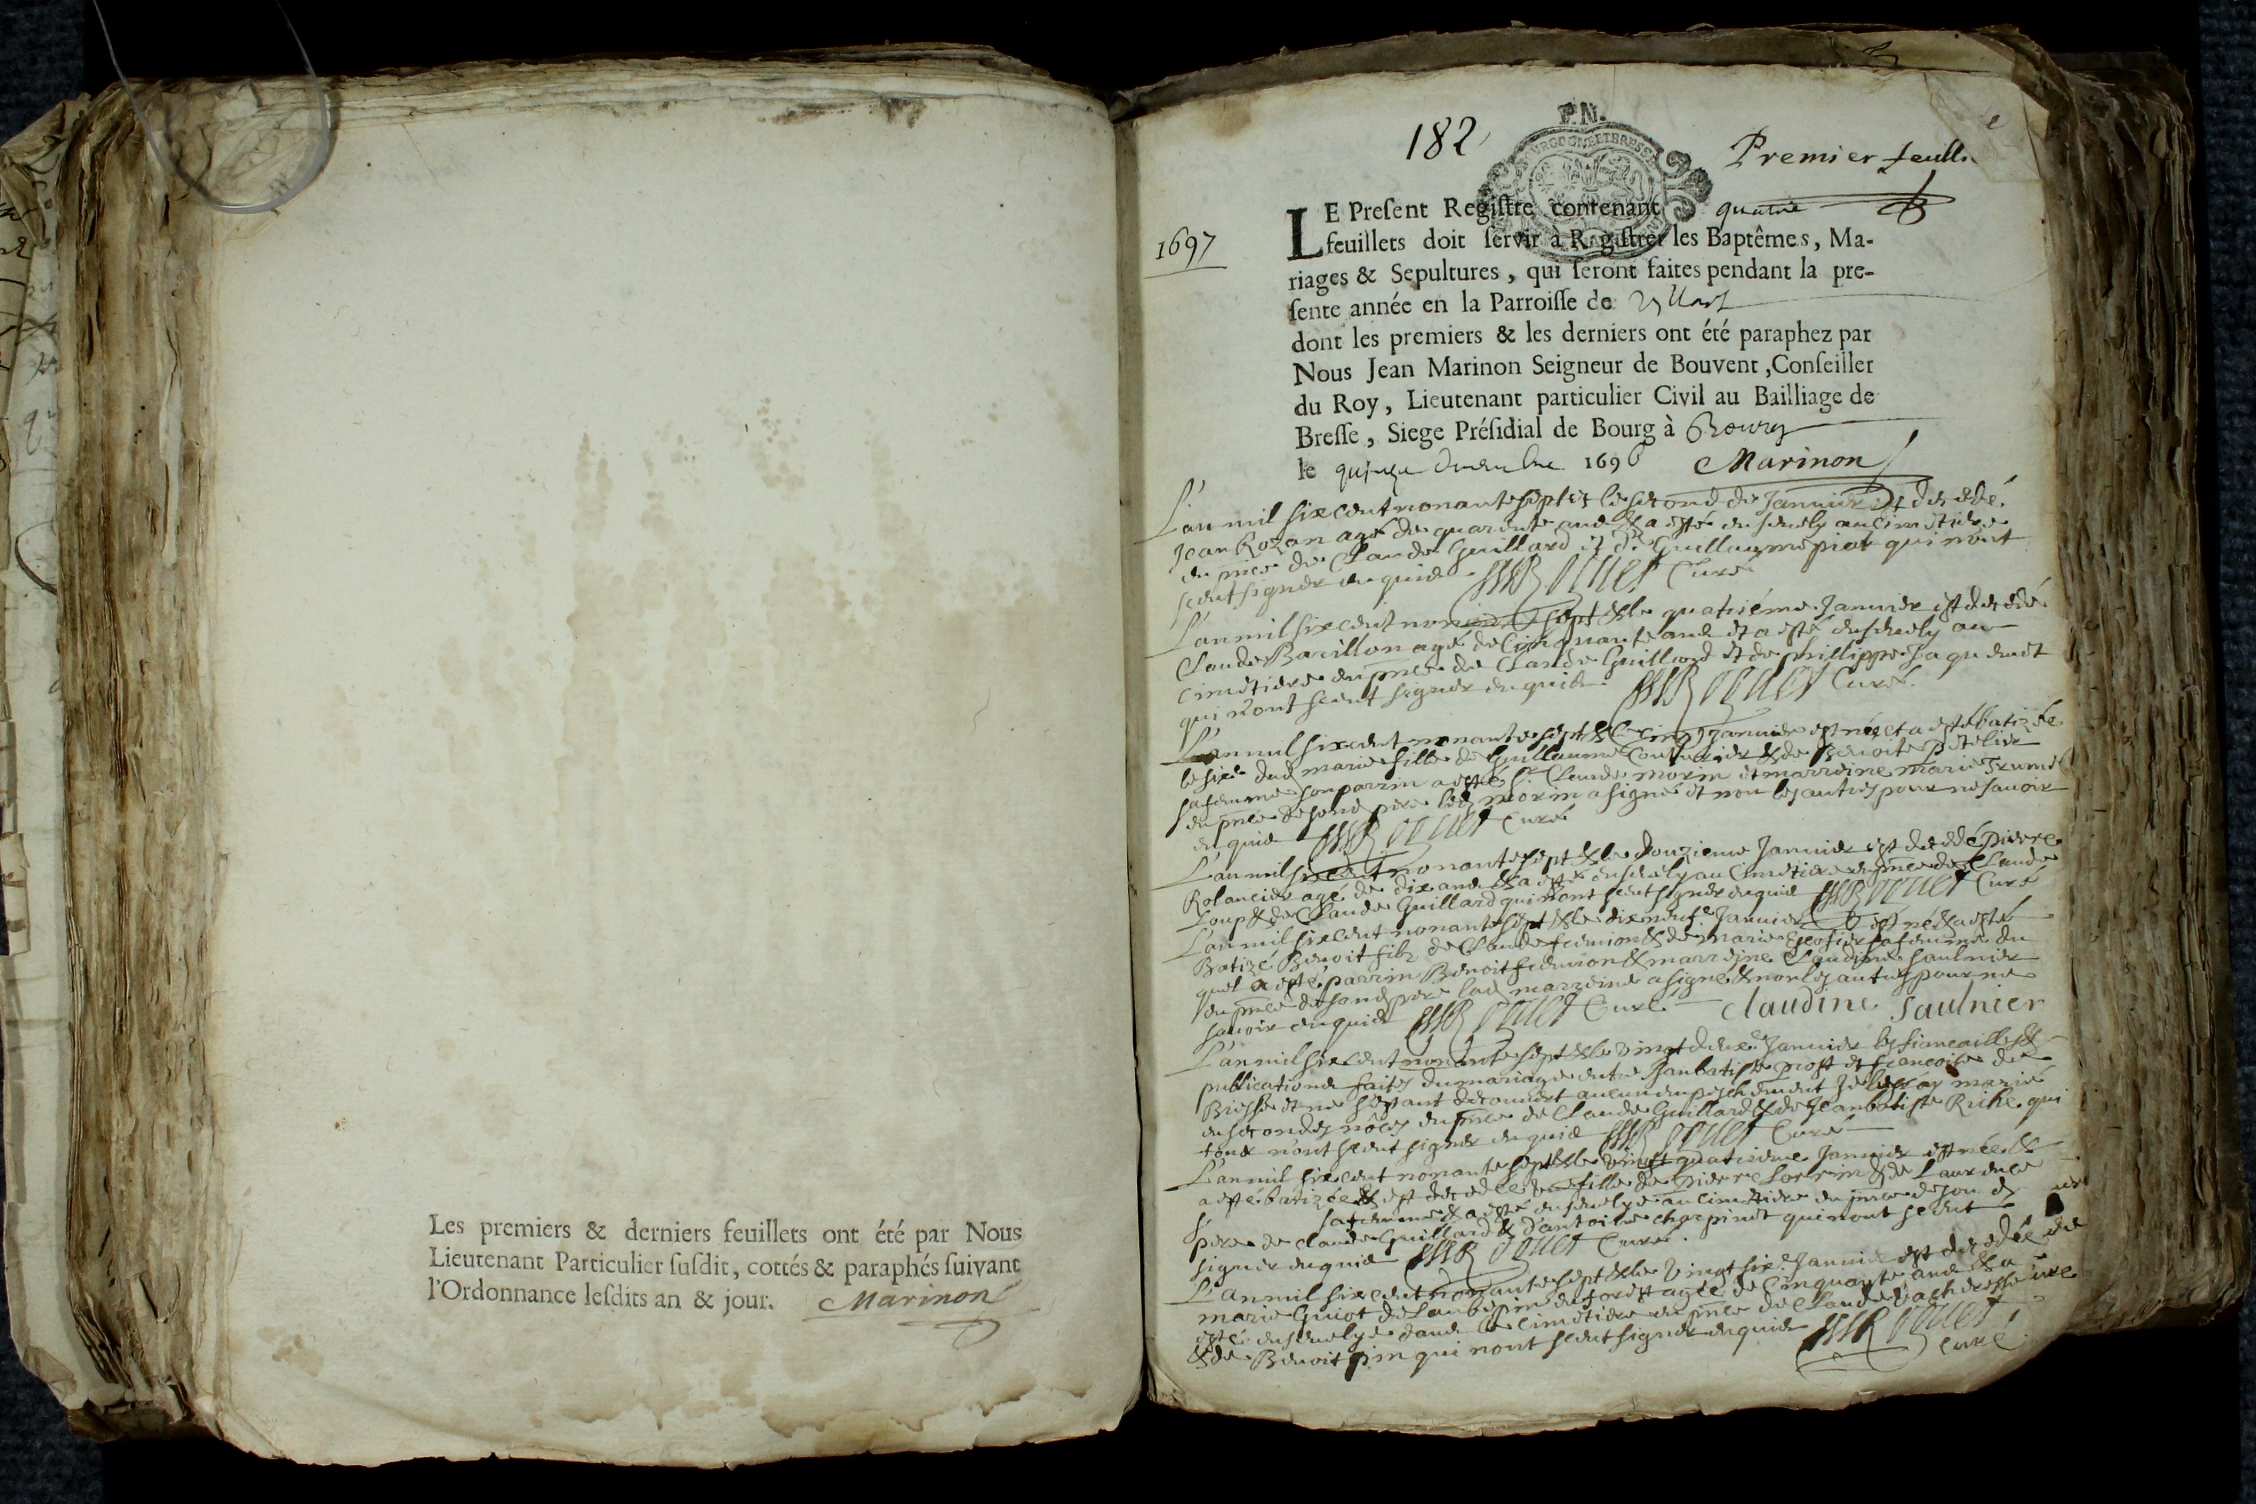 Les premiers & derniers feuillets ont été par Nous
Lieutenant Particulier susdit, cottés & paraphés suivant
l'Ordonnance lesdits an & jour. Marinon
182
P.N.
Premier feuill
1697
LE Present Registre contenant quatre
feuillets doit servir à Registrer les Baptêmes, Ma-
riages & Sepultures, qui seront faites pendant la pre-
sente année en la Parroisse de
dont les premiers & les derniers ont été paraphez par
Nous Jean Marinon Seigneur de Bouvent, Conseiller
du Roy, Lieutenant particulier Civil au Bailliage de
Bresse, Siege Présidial de Bourg à Bourg
le quinze decembre 1696 Marinon
L'an mil six cent nonante sept & le second de Janvier est decedé
Jean Rozan agé de quarente ans & a esté ensevely au cimetiere
en pnce de Claude Guillard et de Guillaume piot qui n'ont
sceut signer enquis Curé
L'an mil six cent nonante sept & le quatriéme Janvier est decedé
Claude Barillon agé de Cinquante ans et a esté ensevely au
Cimetiere en pnce de Claude Guillard et de phillippe Jaquemet
qui n'ont sceut signer enquis Curé.
L'an mil six cent nonante sept & le cinq Janvier est née et a esté batizée
le six dud marie fille de Guillaume & de benoite
sa femme son parrin a esté Sr Claude morin et marreine marie
en pnce de sond pere led morin a signé et non les autres pour ne savoir
enquis Curé
L'an mil six cent nonante sept & le douzieme Janvier est decedé pierre
Rolancier agé de dix ans & a esté ensevely au Cimetiere en pnce de Claude
Loup & de Claude Guillard qui n'ont sceut signer enquis Curé
L'an mil six cent nonante sept & le dix neufe Janvier est né & a esté
Batizé Benoit filz de Claude feumion & de marie sa femme du
quel a esté parrin Benoit feumion & marreyne Claudine Saulnier
en pnce de sond pere lad marreine a signé & non les autres pour ne
savoir enquis Curé Claudine Saulnier
L'an mil six cent nonante sept & le vingt deuxe Janvier les fiancailles &
publications faites du mariage entre Janbatiste prost et francoise de
Bresse et ne s'estant decouvert aucun empeschement Je les ay marié
en secondes nôces en pnce de Claude Guillard & de Jeanbatiste Riche qui
tous n'ont sceut signer enquis Curé
L'an mil six cent nonante sept & le vingt quatrieme Janvier est née &
a esté batizée & est decedée une fille de pierre Lorrin & de Laurence
sa femme & a esté ensevelye au cimetiere en pnce de son d
pere de claude Guillard & d'antoine charpinet qui n'ont sceut
signer enquis Curé.
L'an mil six cent nonante sept & le vingt sixe Janvier est decedée
marie Guiot de Laubepin en agée de Cinquante ans & a
esté ensevelye dans le cimetiere en pnce de Claude
& de Benoit pin qui n'ont sceut signer enquis
curé